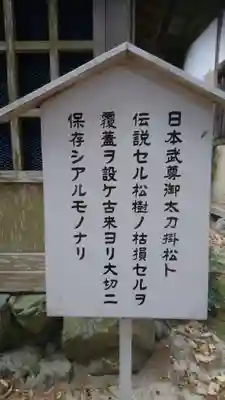 日本武尊御太刀掛松ト
伝説セル松樹ノ枯損セルヲ
覆蓋ヲ設ケ古来ヨリ大切ニ
保存シアルモノナリ